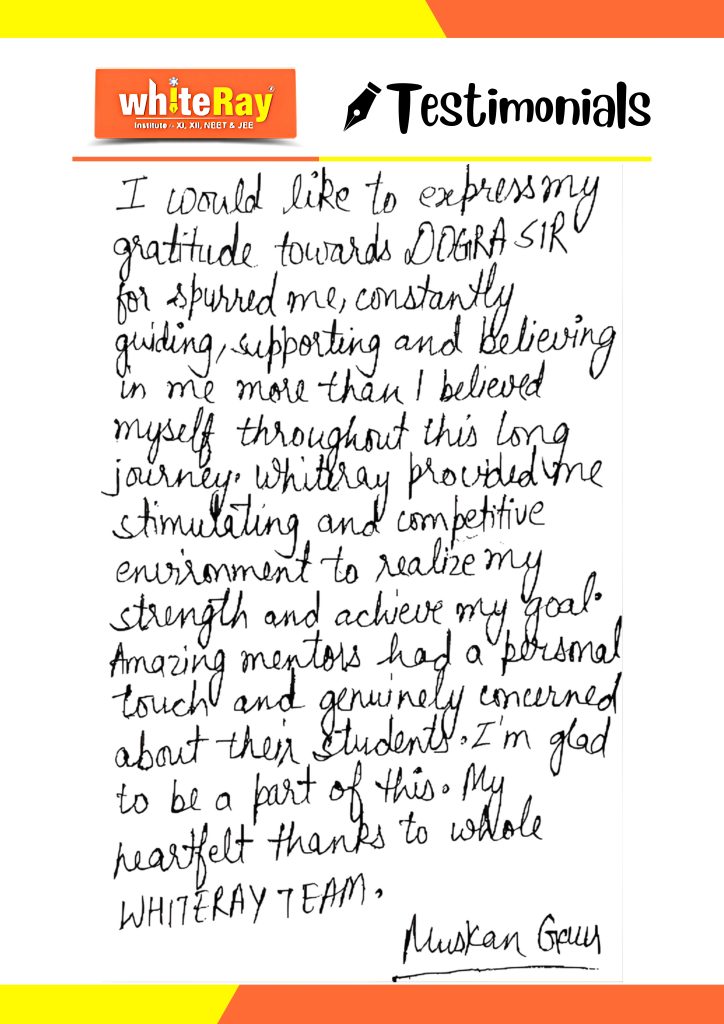 whiteRay
Institute :- XI, XII, NEET & JEE
Testimonials
I would like to express my
gratitude towards DOGRA SIR
for spurred me, constantly
guiding, supporting and believing
in me more than I believed
myself throughout this long
journey. Whiteray provided me
stimulating and competitive
environment to realize my
strength and achieve my goal.
Amazing mentors had a personal
touch and genuinely concerned
about their students. I'm glad
to be a part of this. My
heartfelt thanks to whole
WHITERAY TEAM.
Muskan